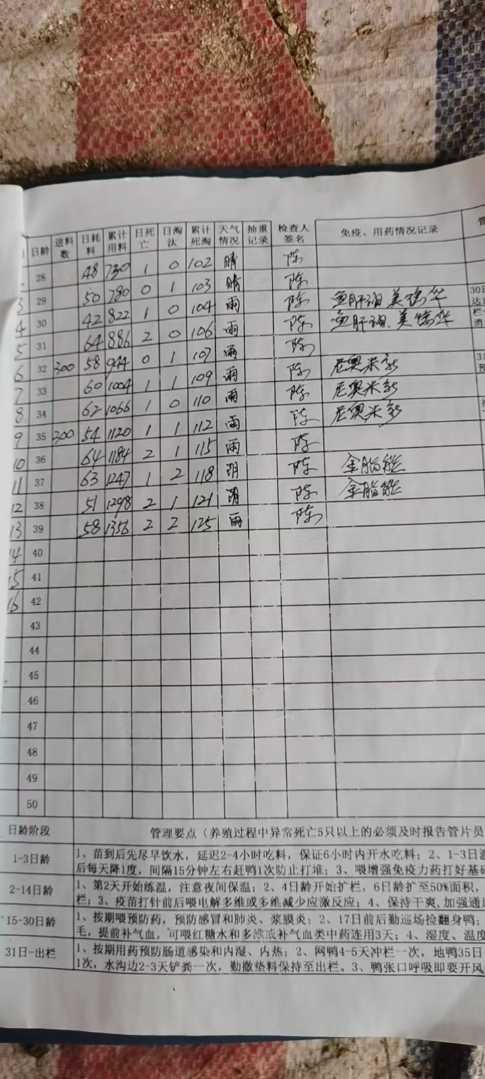 日龄 进料数 日耗料 累计用料 日死亡 日淘汰 累计死淘 天气情况 抽重记录 检查人签名 免疫、用药情况记录
28 48 730 1 0 102 晴 陈
3 29 50 780 0 1 103 晴 陈 鱼肝油 美
4 30 42 822 1 0 104 雨 陈 鱼肝油、美
5 31 64 886 2 0 106 雨 陈
6 32 300 58 944 0 1 107 雨 陈 尼奥米新
7 33 60 1004 1 1 109 雨 陈 尼奥米新
8 34 62 1066 1 0 110 雨 陈 尼奥米新
9 35 200 54 1120 1 1 112 雨 陈
10 36 64 1184 2 1 115 雨 陈 金脂能
11 37 63 1247 1 2 118 阴 陈 金脂能
12 38 51 1298 2 1 121 阴 陈
13 39 58 1356 2 2 125 雨 陈
14 40
15 41
16 42
43
44
45
46
47
48
49
50
日龄阶段 管理要点（养殖过程中异常死亡5只以上的必须及时报告管片员
1-3日龄 1、苗到后先尽早饮水，延迟2-4小时吃料，保证6小时内开水吃料；2、1-3日
后每天降1度，间隔15分钟左右赶鸭1次防止打堆；3、喂增强免疫力药打好基础
2-14日龄 1、第2天开始练温，注意夜间保温；2、4日龄开始扩栏，6日龄扩至50%面积，
栏；3、疫苗打针前后喂电解多维或多维减少应激反应；4、保持干爽，加强通
15-30日龄 1、按期喂预防药，预防感冒和肺炎、浆膜炎；2、17日前后勤巡场捡翻身鸭；
毛，提前补气血，可喂红糖水和多维或补气血类中药连用3天；4、湿度、温度
31日-出栏 1、按期用药预防肠道感染和内湿、内热；2、网鸭4-5天冲栏一次，地鸭35日
1次，水沟边2-3天铲粪一次，勤撒垫料保持至出栏。3、鸭张口呼吸即要开风